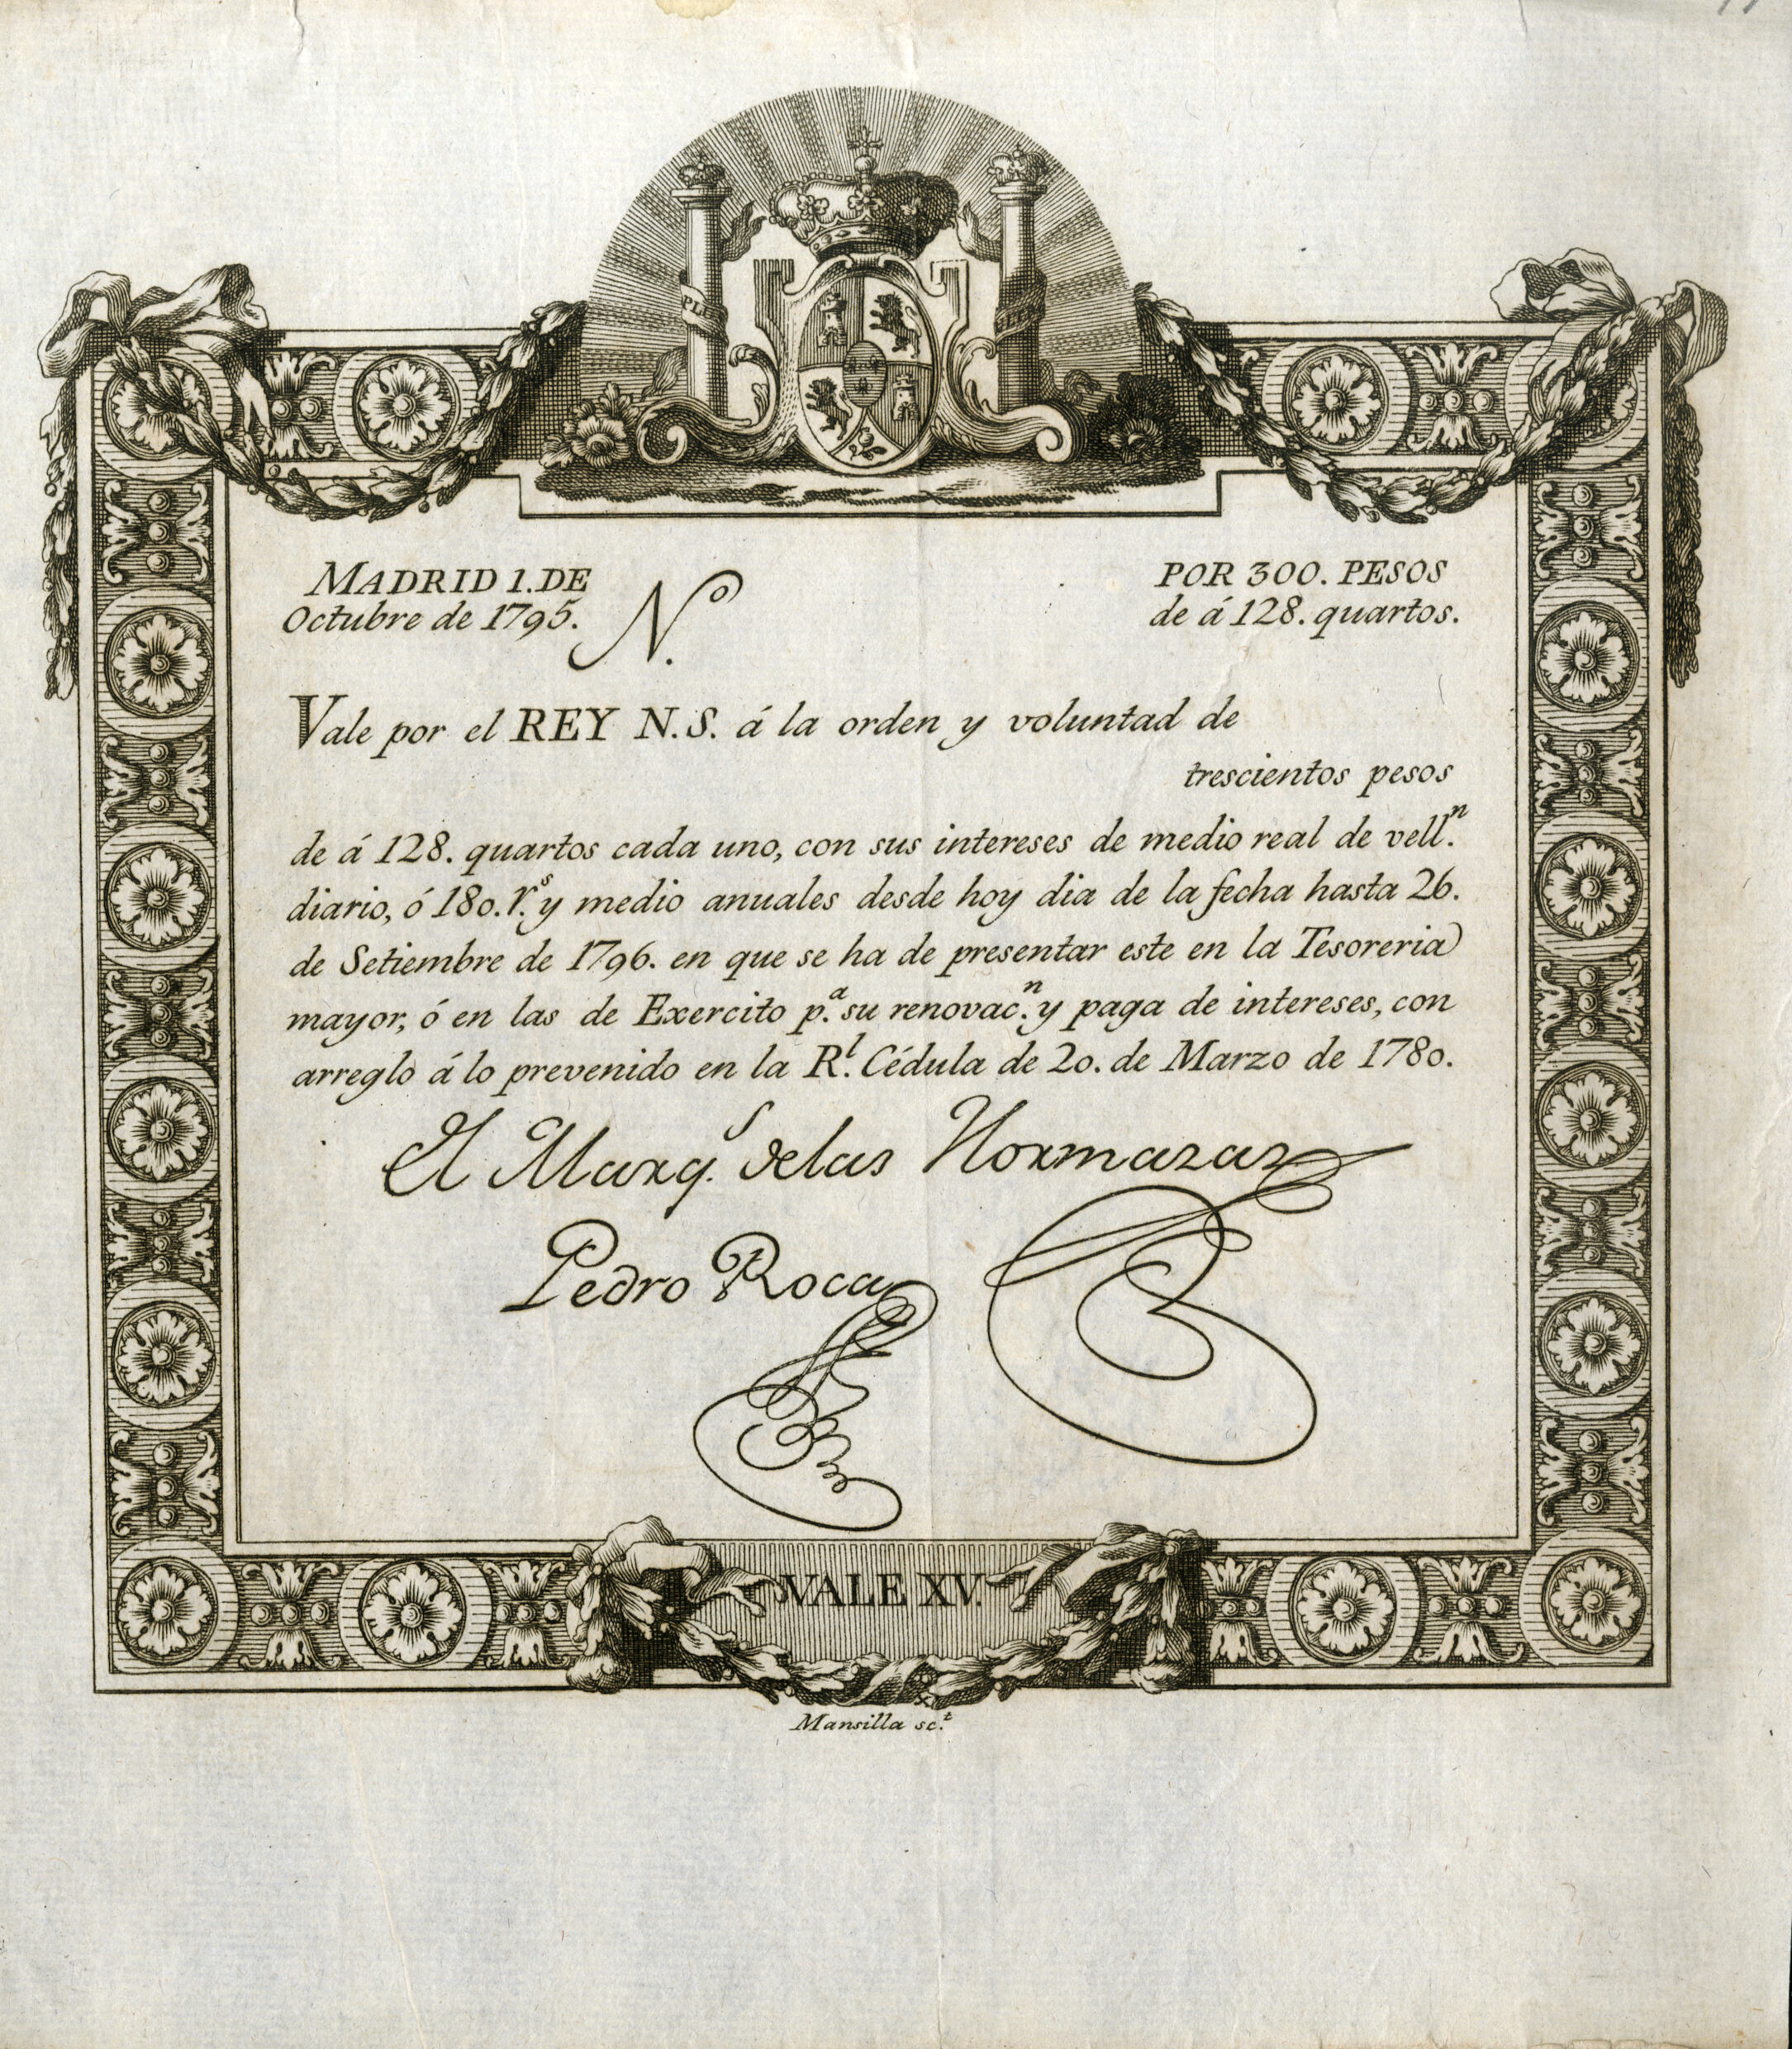 PLUS
MADRID 1. DE
Octubre de 1795.
Nº.
POR 300. PESOS
de á 128. quartos.
Vale por el REY N.S. á la orden y voluntad de
trescientos pesos
de á 128. quartos cada uno, con sus intereses de medio real de vell.ⁿ
diario, ó 180.r.ˢ y medio anuales desde hoy dia de la fecha hasta 26.
de Setiembre de 1796. en que se ha de presentar este en la Tesoreria
mayor, ó en las de Exercito p.ᵃ su renovac.ⁿ y paga de intereses, con
arreglo á lo prevenido en la R.ˡ Cédula de 20. de Marzo de 1780.
El Marq.ˢ delas Hormazas
Pedro Roca
VALE XV.
Mansilla sc.ᵗ